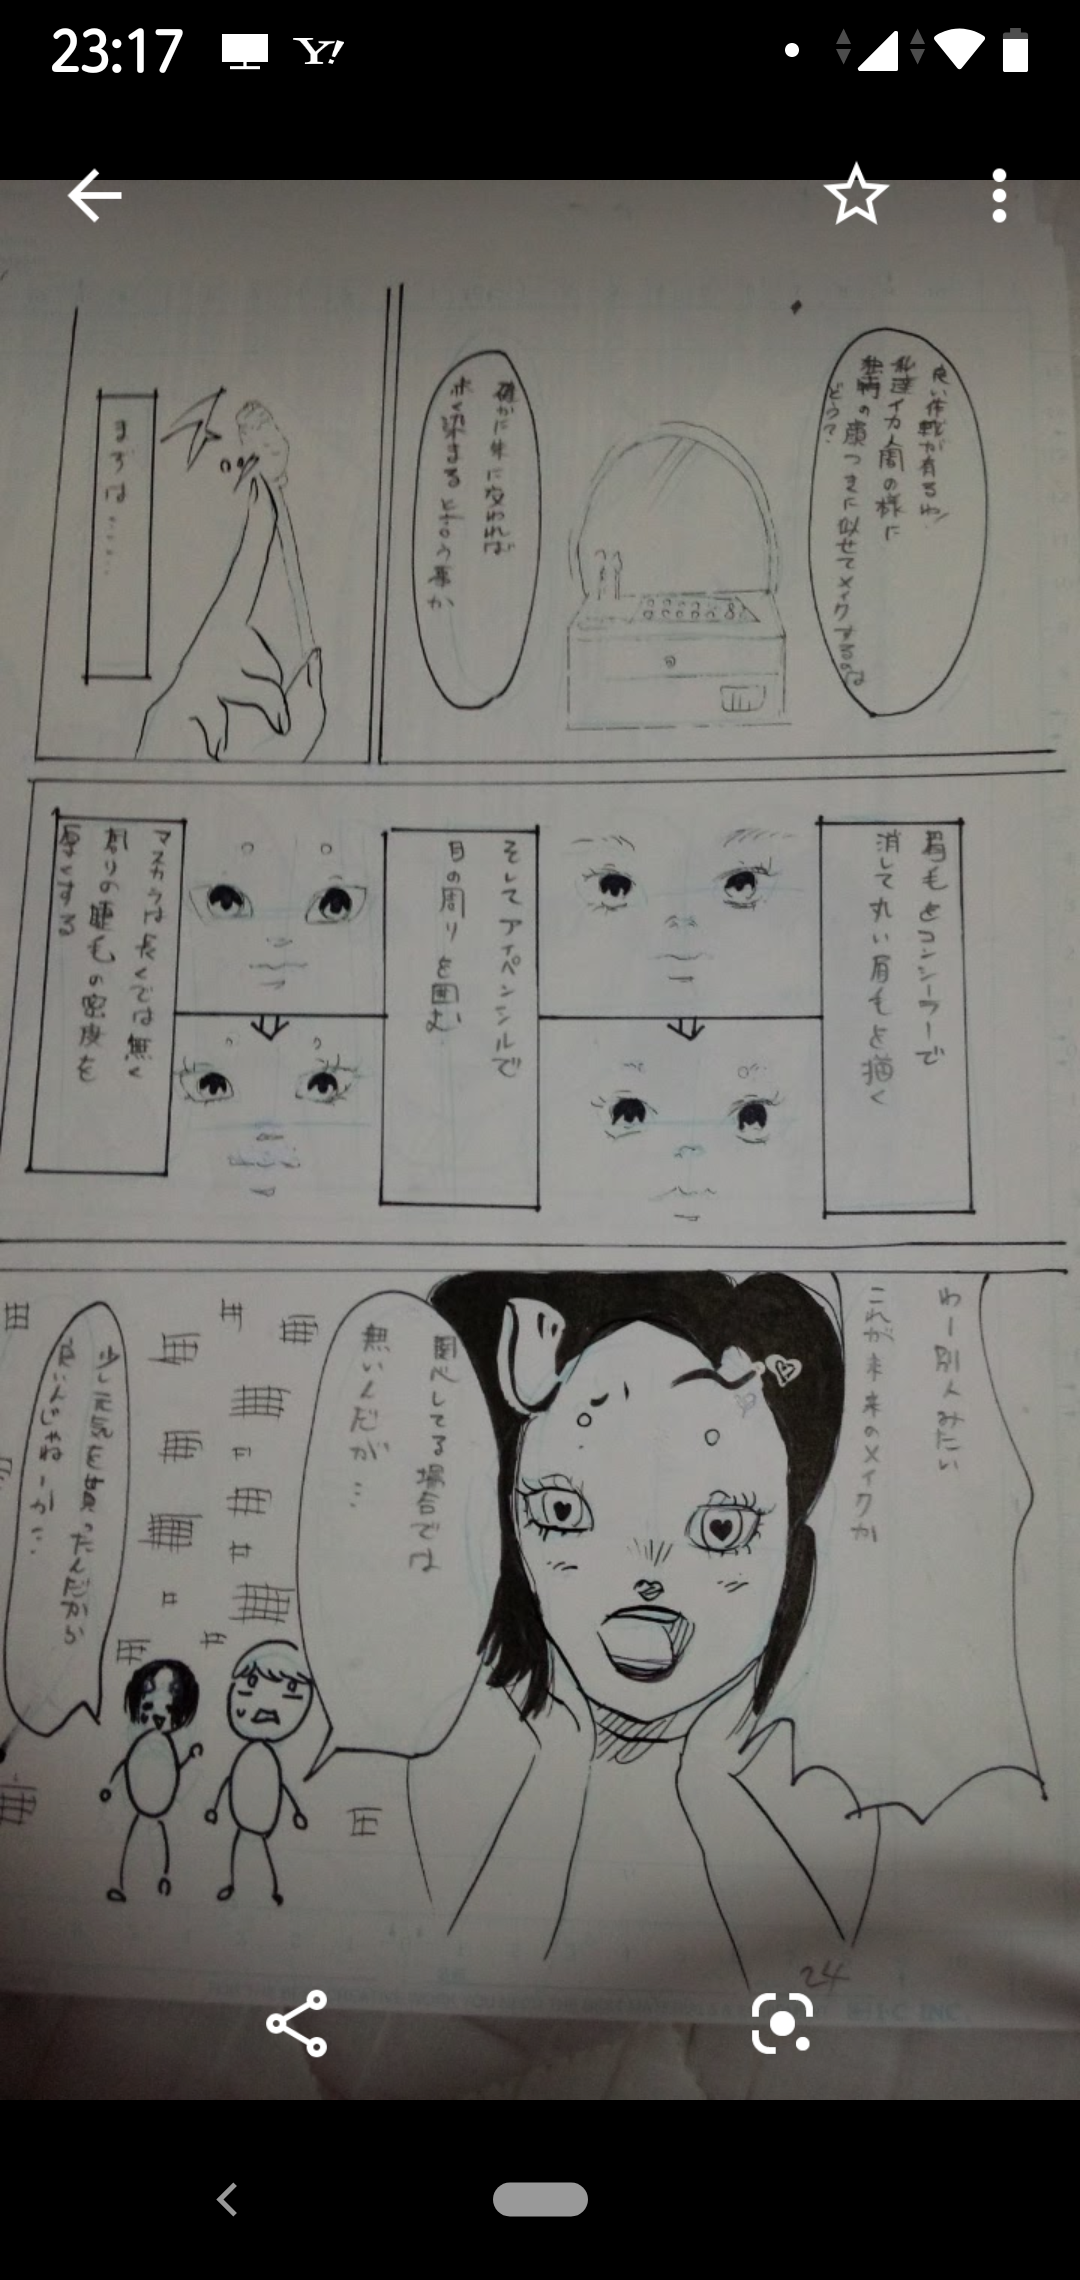 23:17
良い作戦が有るわ!
私達イカ人間の様に
独特の顔つきに似せてメイクするのは
どう?
確かに朱に交われば
赤く染まると言う事か
まずは.....
眉毛をコンシーラーで
消して丸い眉毛を描く
そしてアイペンシルで
目の周りを囲む
マスカラは長くでは無く
周りの睫毛の密度を
厚くする
わー別人みたい
これが未来のメイクか
関心してる場合では
無いんだが...
少し元気を貰ったんだから
良いんじゃねーか...
24